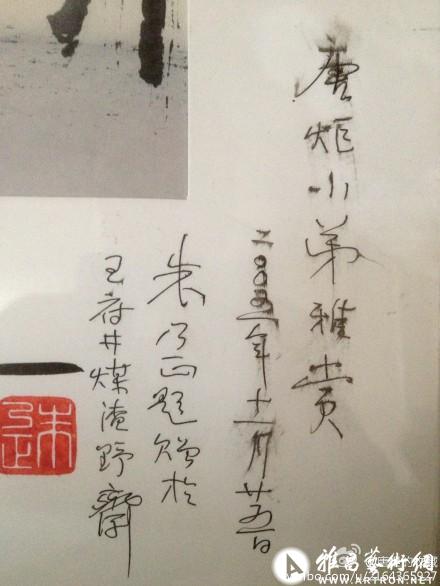 唐炬小弟雅赏
二〇〇年十一月廿五日
朱乃正题赠於
王府井煤渣野齋
朱乃正
雅昌艺术網
WWW.ARTRON.NET